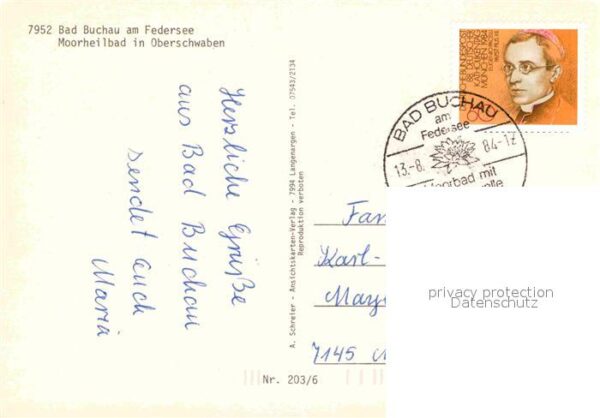 7952 Bad Buchau am Federsee
Moorheilbad in Oberschwaben
Herzliche Grüße
aus Bad Buchau
sendet Euch
Maria
A. Schreier - Ansichtskarten-Verlag - 7994 Langenargen - Tel. 07543/2134
Reproduktion verboten
MÜNCHEN 1984
60
BAD BUCHAU
am
Federsee
13.-8.
84-12
Moorbad mit
Fam
Karl-
7145
Nr. 203/6
privacy protection
Datenschutz